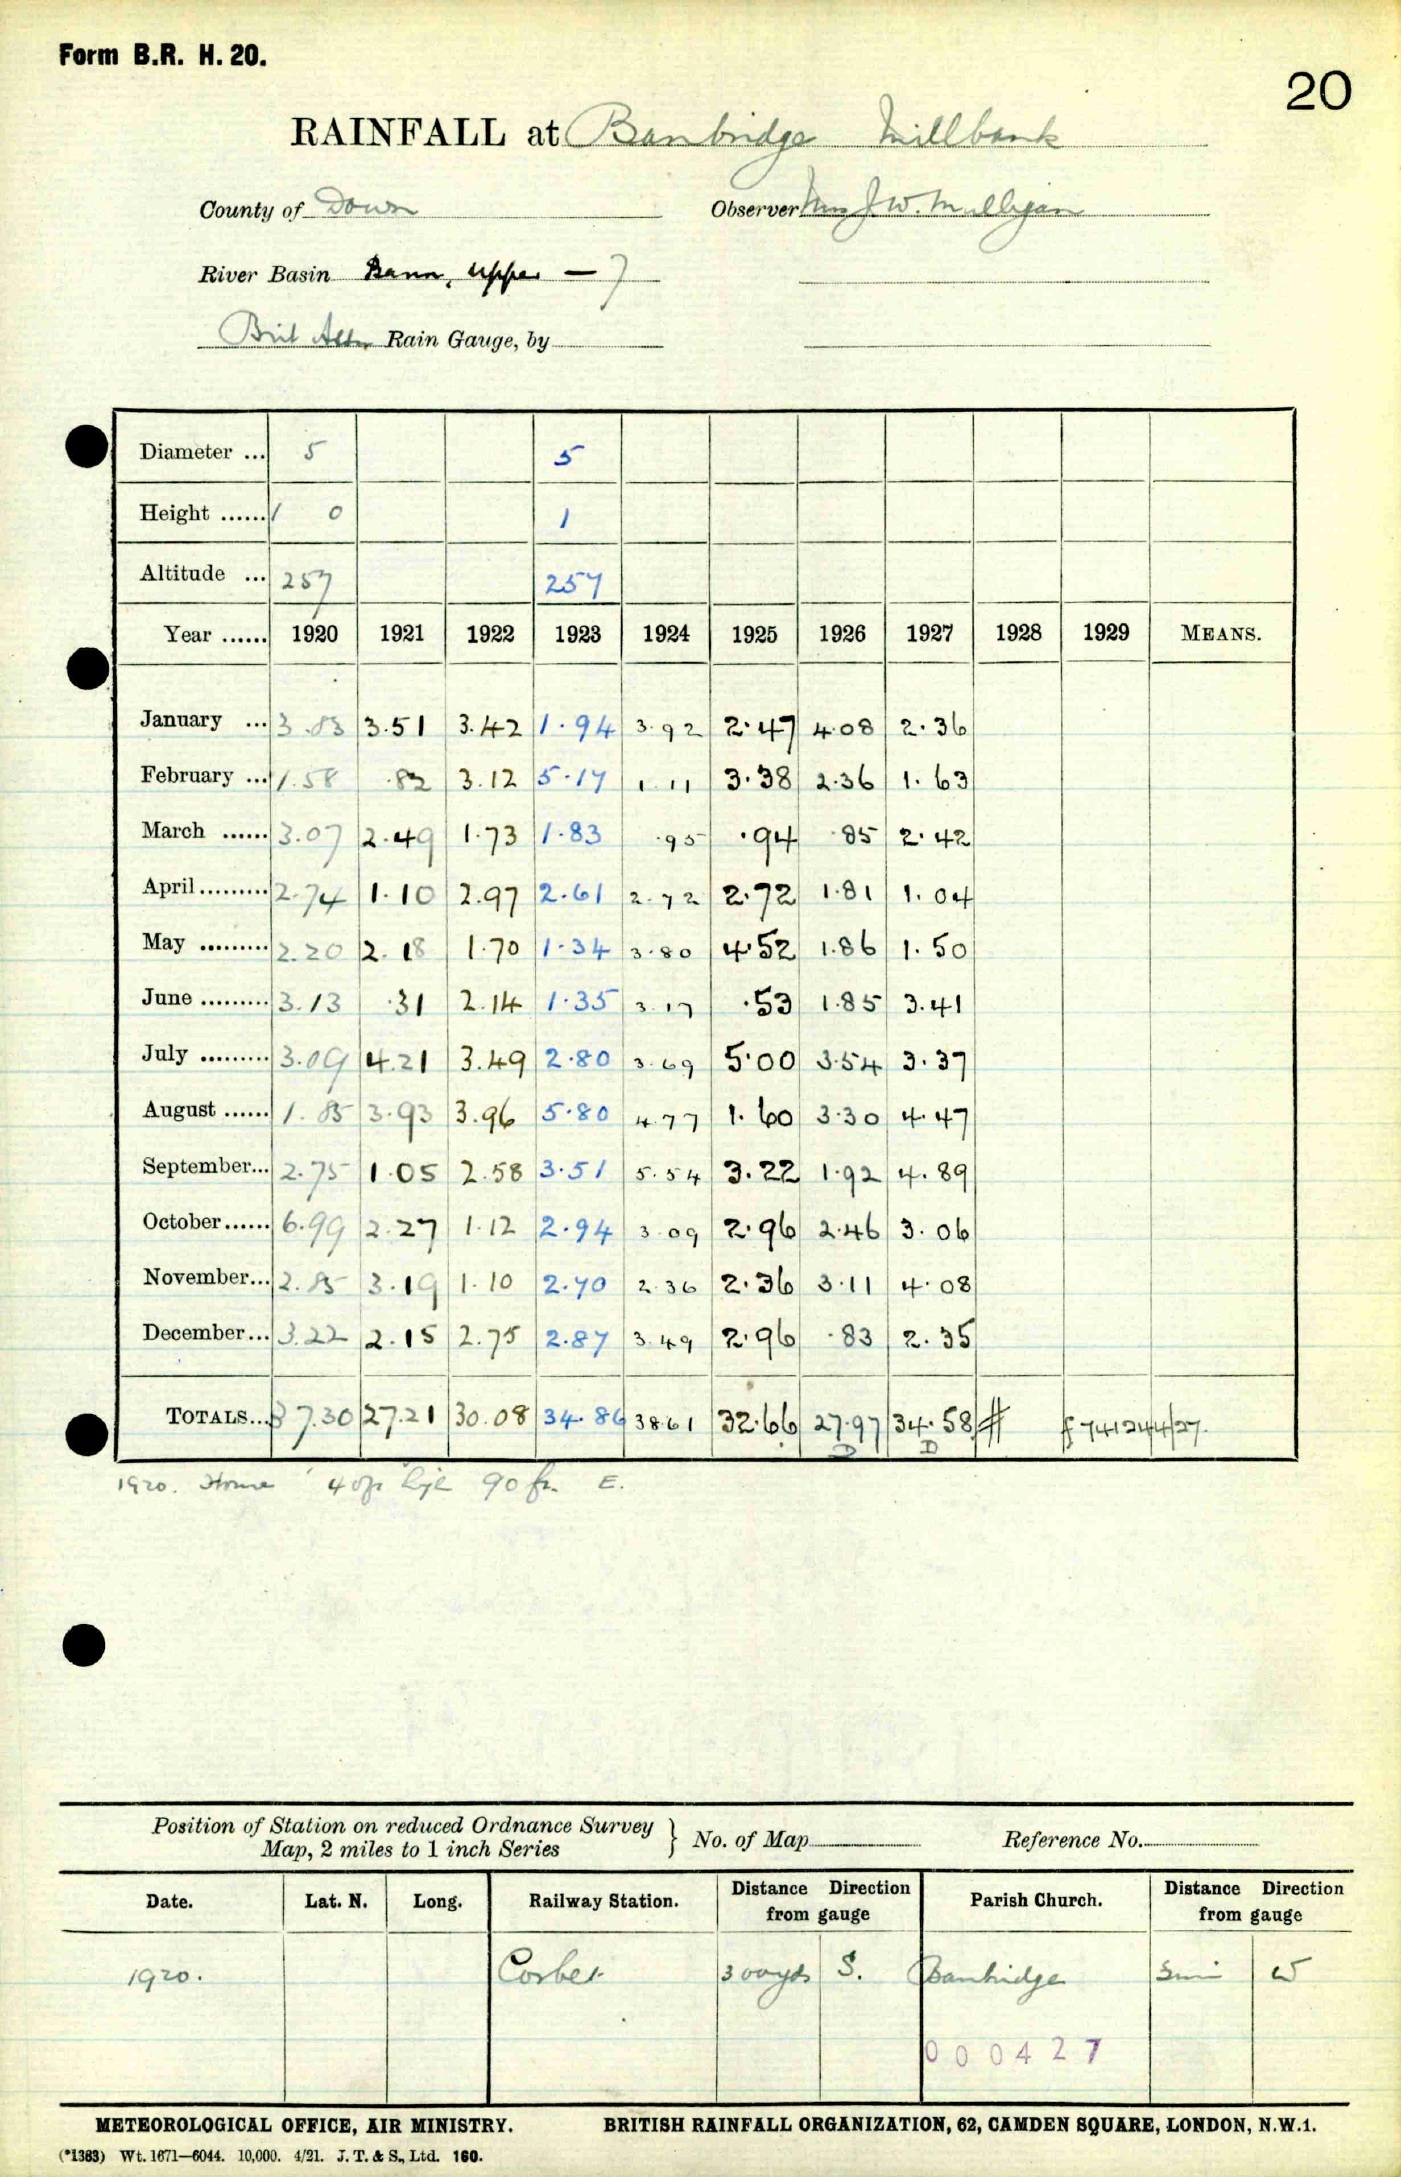 Form B.R. H. 20.
20
RAINFALL at Banbridge Millbank
County of Down Observer Mrs J. W. Mulligan
River Basin Bann, Upper — 7
Brit Assn Rain Gauge, by
Diameter ... 5 5
Height ...... 1 0 1
Altitude ... 257 257
Year ...... 1920 1921 1922 1923 1924 1925 1926 1927 1928 1929 MEANS.
January ... 3.83 3.51 3.42 1.94 3.92 2.47 4.08 2.36
February ... 1.58 .82 3.12 5.17 1.11 3.38 2.36 1.63
March ...... 3.07 2.49 1.73 1.83 .95 .94 .85 2.42
April ......... 2.74 1.10 2.97 2.61 2.72 2.72 1.81 1.04
May ......... 2.20 2.18 1.70 1.34 3.80 4.52 1.86 1.50
June ......... 3.13 .31 2.14 1.35 3.17 .53 1.85 3.41
July ......... 3.09 4.21 3.49 2.80 3.69 5.00 3.54 3.37
August ...... 1.85 3.93 3.96 5.80 4.77 1.60 3.30 4.47
September... 2.75 1.05 2.58 3.51 5.54 3.22 1.92 4.89
October...... 6.99 2.27 1.12 2.94 3.09 2.96 2.46 3.06
November... 2.85 3.19 1.10 2.70 2.36 2.36 3.11 4.08
December... 3.22 2.15 2.75 2.87 3.49 2.96 .83 2.35
TOTALS... 37.30 27.21 30.08 34.86 38.61 32.66 27.97 34.58 # f 741244/27.
D D
1920. 90 E.
Position of Station on reduced Ordnance Survey
Map, 2 miles to 1 inch Series } No. of Map Reference No.
Date. Lat. N. Long. Railway Station. Distance Direction from gauge Parish Church. Distance Direction from gauge
1920. Corbet 300yds S. Banbridge 3mi W
000427
METEOROLOGICAL OFFICE, AIR MINISTRY. BRITISH RAINFALL ORGANIZATION, 62, CAMDEN SQUARE, LONDON, N.W.1.
(*1383) Wt. 1671—6044. 10,000. 4/21. J. T. & S., Ltd. 160.